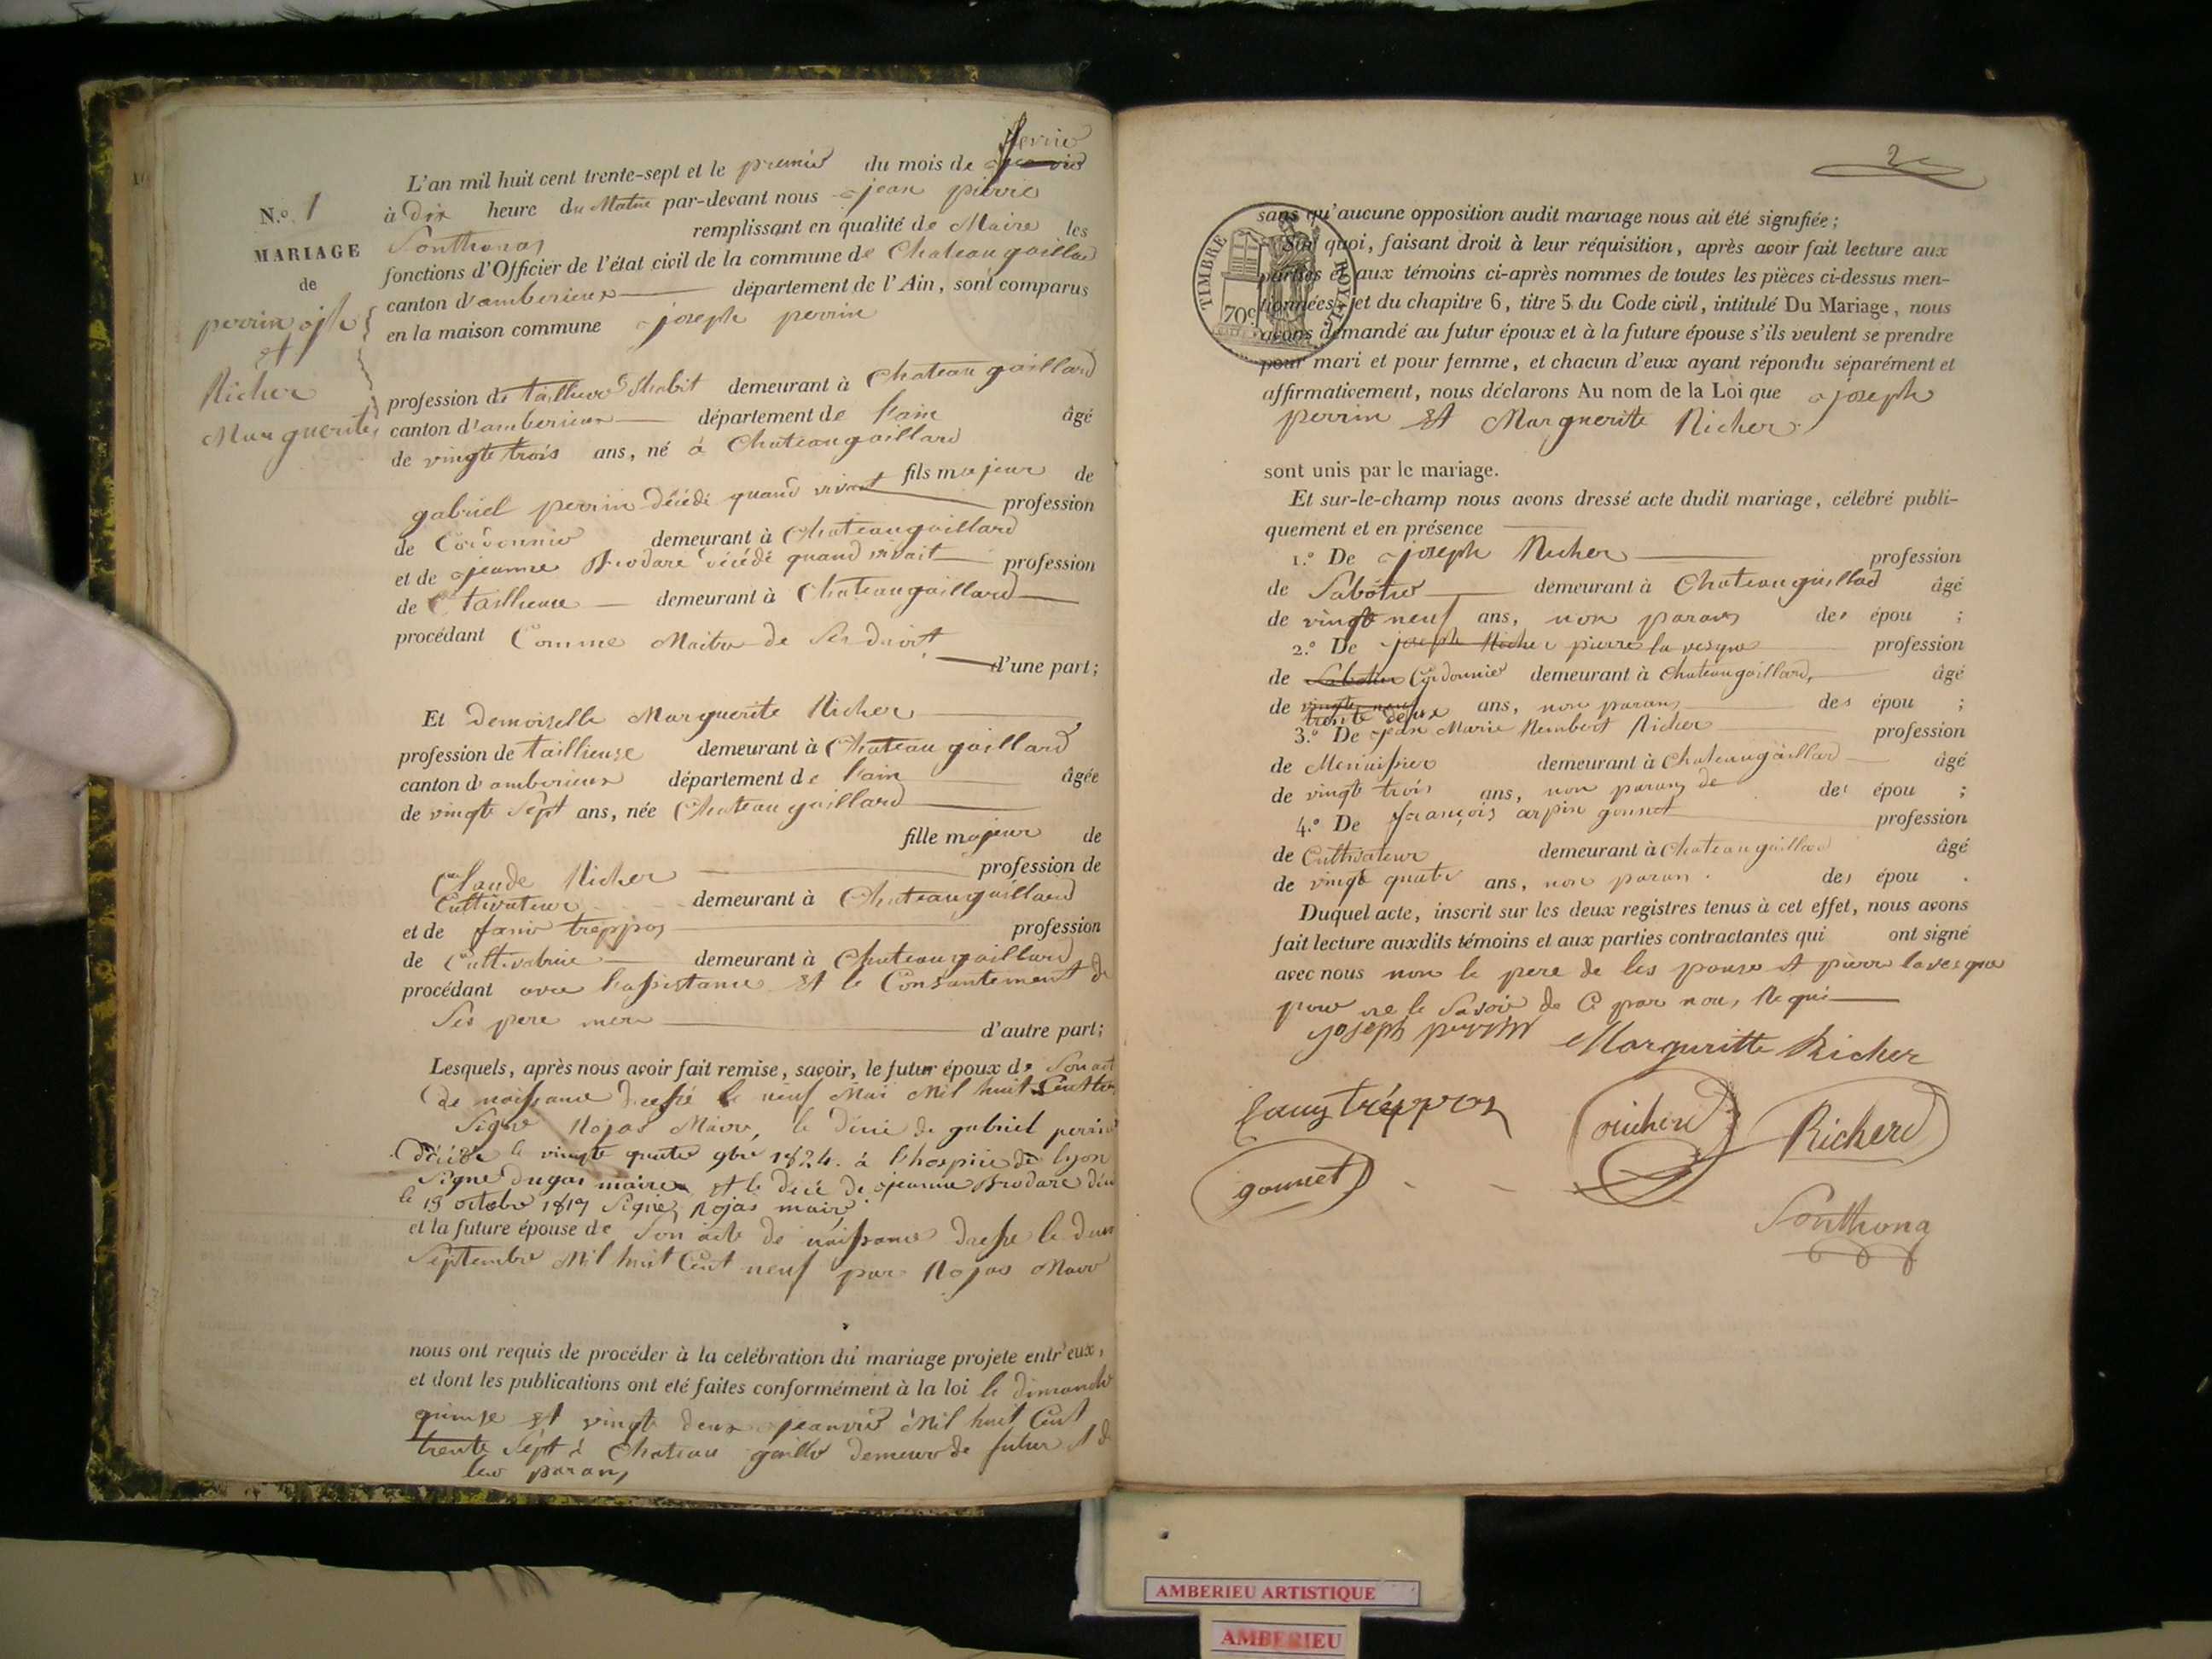 fevrier
L'an mil huit cent trente-sept et le premier du mois de janvier
N.o 1 à dix heure du Matin par-devant nous jean pierre
Sonthonas remplissant en qualité de Maire les
MARIAGE fonctions d'Officier de l'état civil de la commune de Chateaugaillard
de canton d'amberieux département de l'Ain, sont comparus
perrin jph en la maison commune joseph perrin
et
Richer profession de tallieur d'habit demeurant à Chateaugaillard
Marguerite canton d'amberieux département de l'ain âgé
de vingt trois ans, né à Chateaugaillard
fils majeur de
gabriel perrin décédé quand vivait profession
de Cordonnier demeurant à Chateaugaillard
et de jeanne Brodare décédé quand vivait profession
de tallieuse demeurant à Chateaugaillard
procédant Comme Maitre de Ses droit
d'une part;
Et demoiselle Marguerite Richer
profession de tailleuse demeurant à Chateau gaillard
canton d'amberieux département de l'ain âgée
de vingt Sept ans, née Chateau gaillard
fille majeur de
Claude Richer profession de
Cultivateur demeurant à Chateaugaillard
et de fanie treppoz profession
de Cultivatrice demeurant à Chateaugaillard
procédant avec l'assistance et le Consantement de
Ses pere mere d'autre part;
Lesquels, après nous avoir fait remise, savoir, le futur époux de Son act
de naissance dressé le neuf Mai Mil huit Cent
Signe Rojas Maire, le déué de gabriel perrin
décédé le vingte quatre 9bre 1824. à l'hospice de lyon
Signe dugas maire et le décé de jeanne Brodare
le 19 octobre 1819 Signez Rojas maire
et la future épouse de Son acte de naissance dresse le
Septembre Mil huit Cent neuf par Rojas Maire
nous ont requis de procéder à la celébration du mariage projete entr'eux,
et dont les publications ont été faites conformément à la loi le dimanche
quinze et vingt deux jeanvier Mil huit Cent
trente Sept à Chateau gaillr demeure de futur et de
leur paran
2e
TIMBRE ROYAL
70c
sans qu'aucune opposition audit mariage nous ait été signifiée;
Sur quoi, faisant droit à leur réquisition, après avoir fait lecture aux
parties et aux témoins ci-après nommes de toutes les pièces ci-dessus men-
tionnées, et du chapitre 6, titre 5 du Code civil, intitulé Du Mariage, nous
avons demandé au futur époux et à la future épouse s'ils veulent se prendre
pour mari et pour femme, et chacun d'eux ayant répondu séparément et
affirmativement, nous déclarons Au nom de la Loi que joseph
perrin et Marguerite Richer
sont unis par le mariage.
Et sur-le-champ nous avons dressé acte dudit mariage, célébré publi-
quement et en présence
1.o De joseph Richer profession
de Sabotier demeurant à Chateaugaillad âgé
de vingt neuf ans, non parans des épou ;
2.o De joseph Richer pierre lavesque profession
de Sabotier Cordonnier demeurant à Chateaugaillard, âgé
de vingt neuf ans, non parans des épou ;
trente deux
3.o De jean Marie Humbert Richer profession
de Menuisier demeurant à Chateaugaillard âgé
de vingt trois ans, non parans de des épou ;
4.o De françois arpin gonnet profession
de Cultivateur demeurant à Chateaugaillard âgé
de vingt quatre ans, non paran. des épou .
Duquel acte, inscrit sur les deux registres tenus à cet effet, nous avons
fait lecture auxdits témoins et aux parties contractantes qui ont signé
avec nous non le pere de les pouse et pierre lavesque
pour ne le Savoir de Ce par nou, Requi
joseph perrin Margueritte Richer
fany tréppoz oricherd Richerd
gonnet
Sonthona
AMBERIEU ARTISTIQUE
AMBERIEU